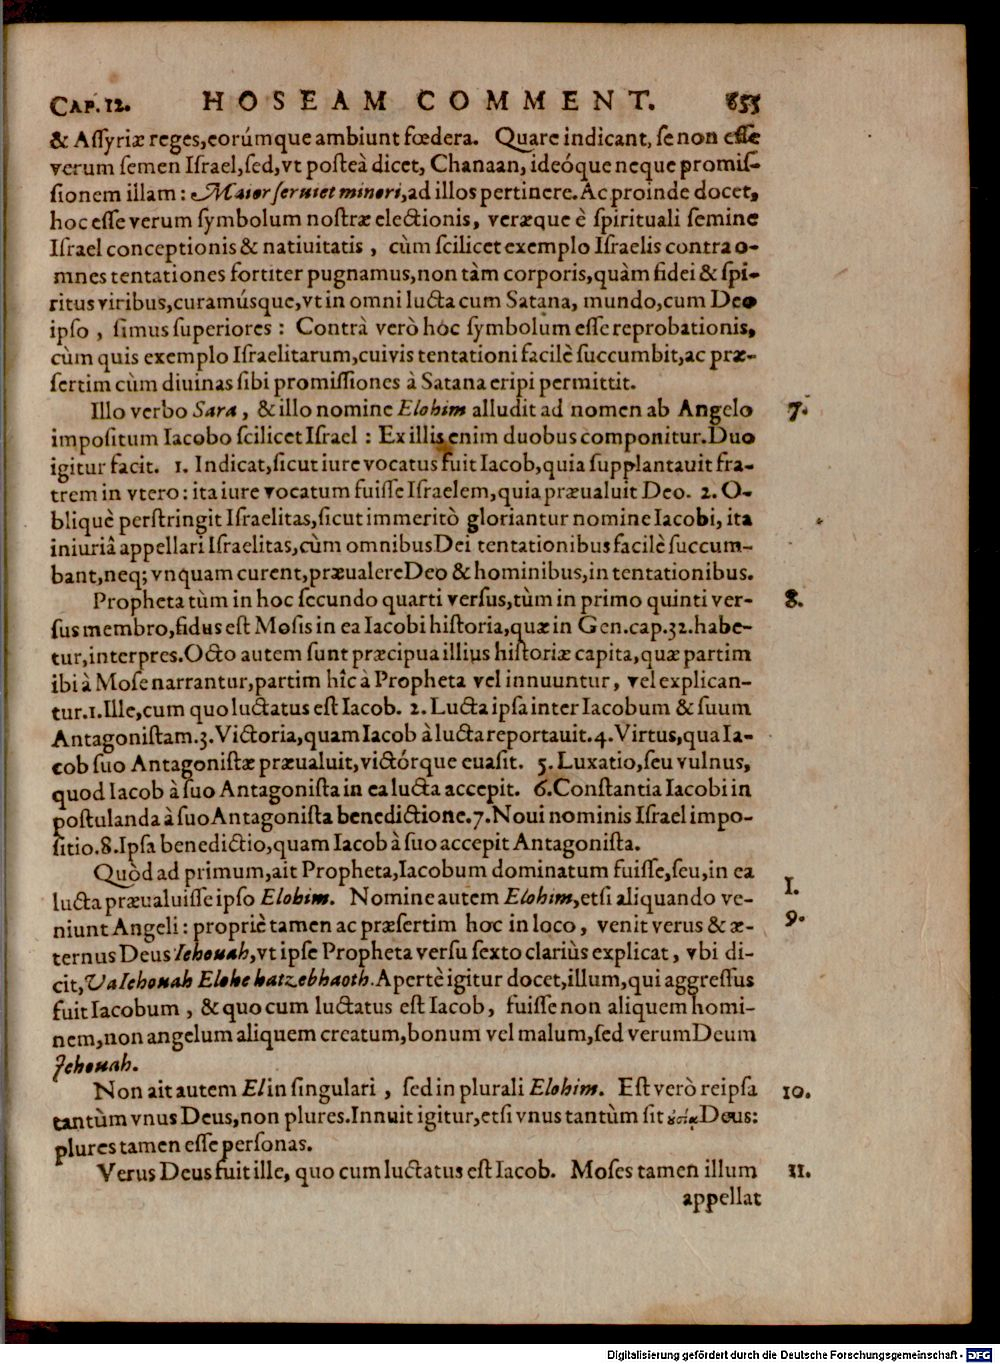 CAP. 12. HOSEAM COMMENT. 655
& Aſſyriæ reges, eorúmque ambiunt fœdera. Quare indicant, ſe non eſſe
verum ſemen Iſrael, ſed, vt poſteà dicet, Chanaan, ideóque neque promiſ-
ſionem illam: Maior ſeruiet minori, ad illos pertinere. Ac proinde docet,
hoc eſſe verum ſymbolum noſtræ electionis, veræque è ſpirituali ſemine
Iſrael conceptionis & natiuitatis, cùm ſcilicet exemplo Iſraelis contra o-
mnes tentationes fortiter pugnamus, non tàm corporis, quàm fidei & ſpi-
ritus viribus, curamúsque, vt in omni lucta cum Satana, mundo, cum Deo
ipſo, ſimus ſuperiores: Contrà verò hoc ſymbolum eſſe reprobationis,
cùm quis exemplo Iſraelitarum, cuivis tentationi facilè ſuccumbit, ac præ-
ſertim cùm diuinas ſibi promiſſiones à Satana eripi permittit.
Illo verbo Sara, & illo nomine Elohim alludit ad nomen ab Angelo 7.
impoſitum Iacobo ſcilicet Iſrael: Ex illis enim duobus componitur. Duo
igitur facit. 1. Indicat, ſicut iure vocatus fuit Iacob, quia ſupplantauit fra-
trem in vtero: ita iure vocatum fuiſſe Iſraelem, quia præualuit Deo. 2. O-
bliquè perſtringit Iſraelitas, ſicut immeritò gloriantur nomine Iacobi, ita
iniuriâ appellari Iſraelitas, cùm omnibus Dei tentationibus facilè ſuccum-
bant, neq; vnquam curent, præualere Deo & hominibus, in tentationibus.
Propheta tùm in hoc ſecundo quarti verſus, tùm in primo quinti ver- 8.
ſus membro, fidus eſt Moſis in ea Iacobi hiſtoria, quæ in Gen. cap. 32. habe-
tur, interpres. Octo autem ſunt præcipua illius hiſtoriæ capita, quæ partim
ibi à Moſe narrantur, partim hîc à Propheta vel innuuntur, vel explican-
tur. 1. Ille, cum quo luctatus eſt Iacob. 2. Lucta ipſa inter Iacobum & ſuum
Antagoniſtam. 3. Victoria, quam Iacob à lucta reportauit. 4. Virtus, qua Ia-
cob ſuo Antagoniſtæ præualuit, victórque euaſit. 5. Luxatio, ſeu vulnus,
quod Iacob à ſuo Antagoniſta in ea lucta accepit. 6. Conſtantia Iacobi in
poſtulanda à ſuo Antagoniſta benedictione. 7. Noui nominis Iſrael impo-
ſitio. 8. Ipſa benedictio, quam Iacob à ſuo accepit Antagoniſta.
Quòd ad primum, ait Propheta, Iacobum dominatum fuiſſe, ſeu, in ea 1.
lucta præualuiſſe ipſo Elohim. Nomine autem Elohim, etſi aliquando ve-
niunt Angeli: propriè tamen ac præſertim hoc in loco, venit verus & æ- 9.
ternus Deus Iehouah, vt ipſe Propheta verſu ſexto clariùs explicat, vbi di-
cit, Va Iehouah Elohe hatzebhaoth. Apertè igitur docet, illum, qui aggreſſus
fuit Iacobum, & quo cum luctatus eſt Iacob, fuiſſe non aliquem homi-
nem, non angelum aliquem creatum, bonum vel malum, ſed verum Deum
Jehouah.
Non ait autem El in ſingulari, ſed in plurali Elohim. Eſt verò reipſa 10.
tantùm vnus Deus, non plures. Innuit igitur, etſi vnus tantùm ſit οὐσίᾳ Deus:
plures tamen eſſe perſonas.
Verus Deus fuit ille, quo cum luctatus eſt Iacob. Moſes tamen illum 11.
appellat
Digitalisierung gefördert durch die Deutsche Forschungsgemeinschaft - DFG